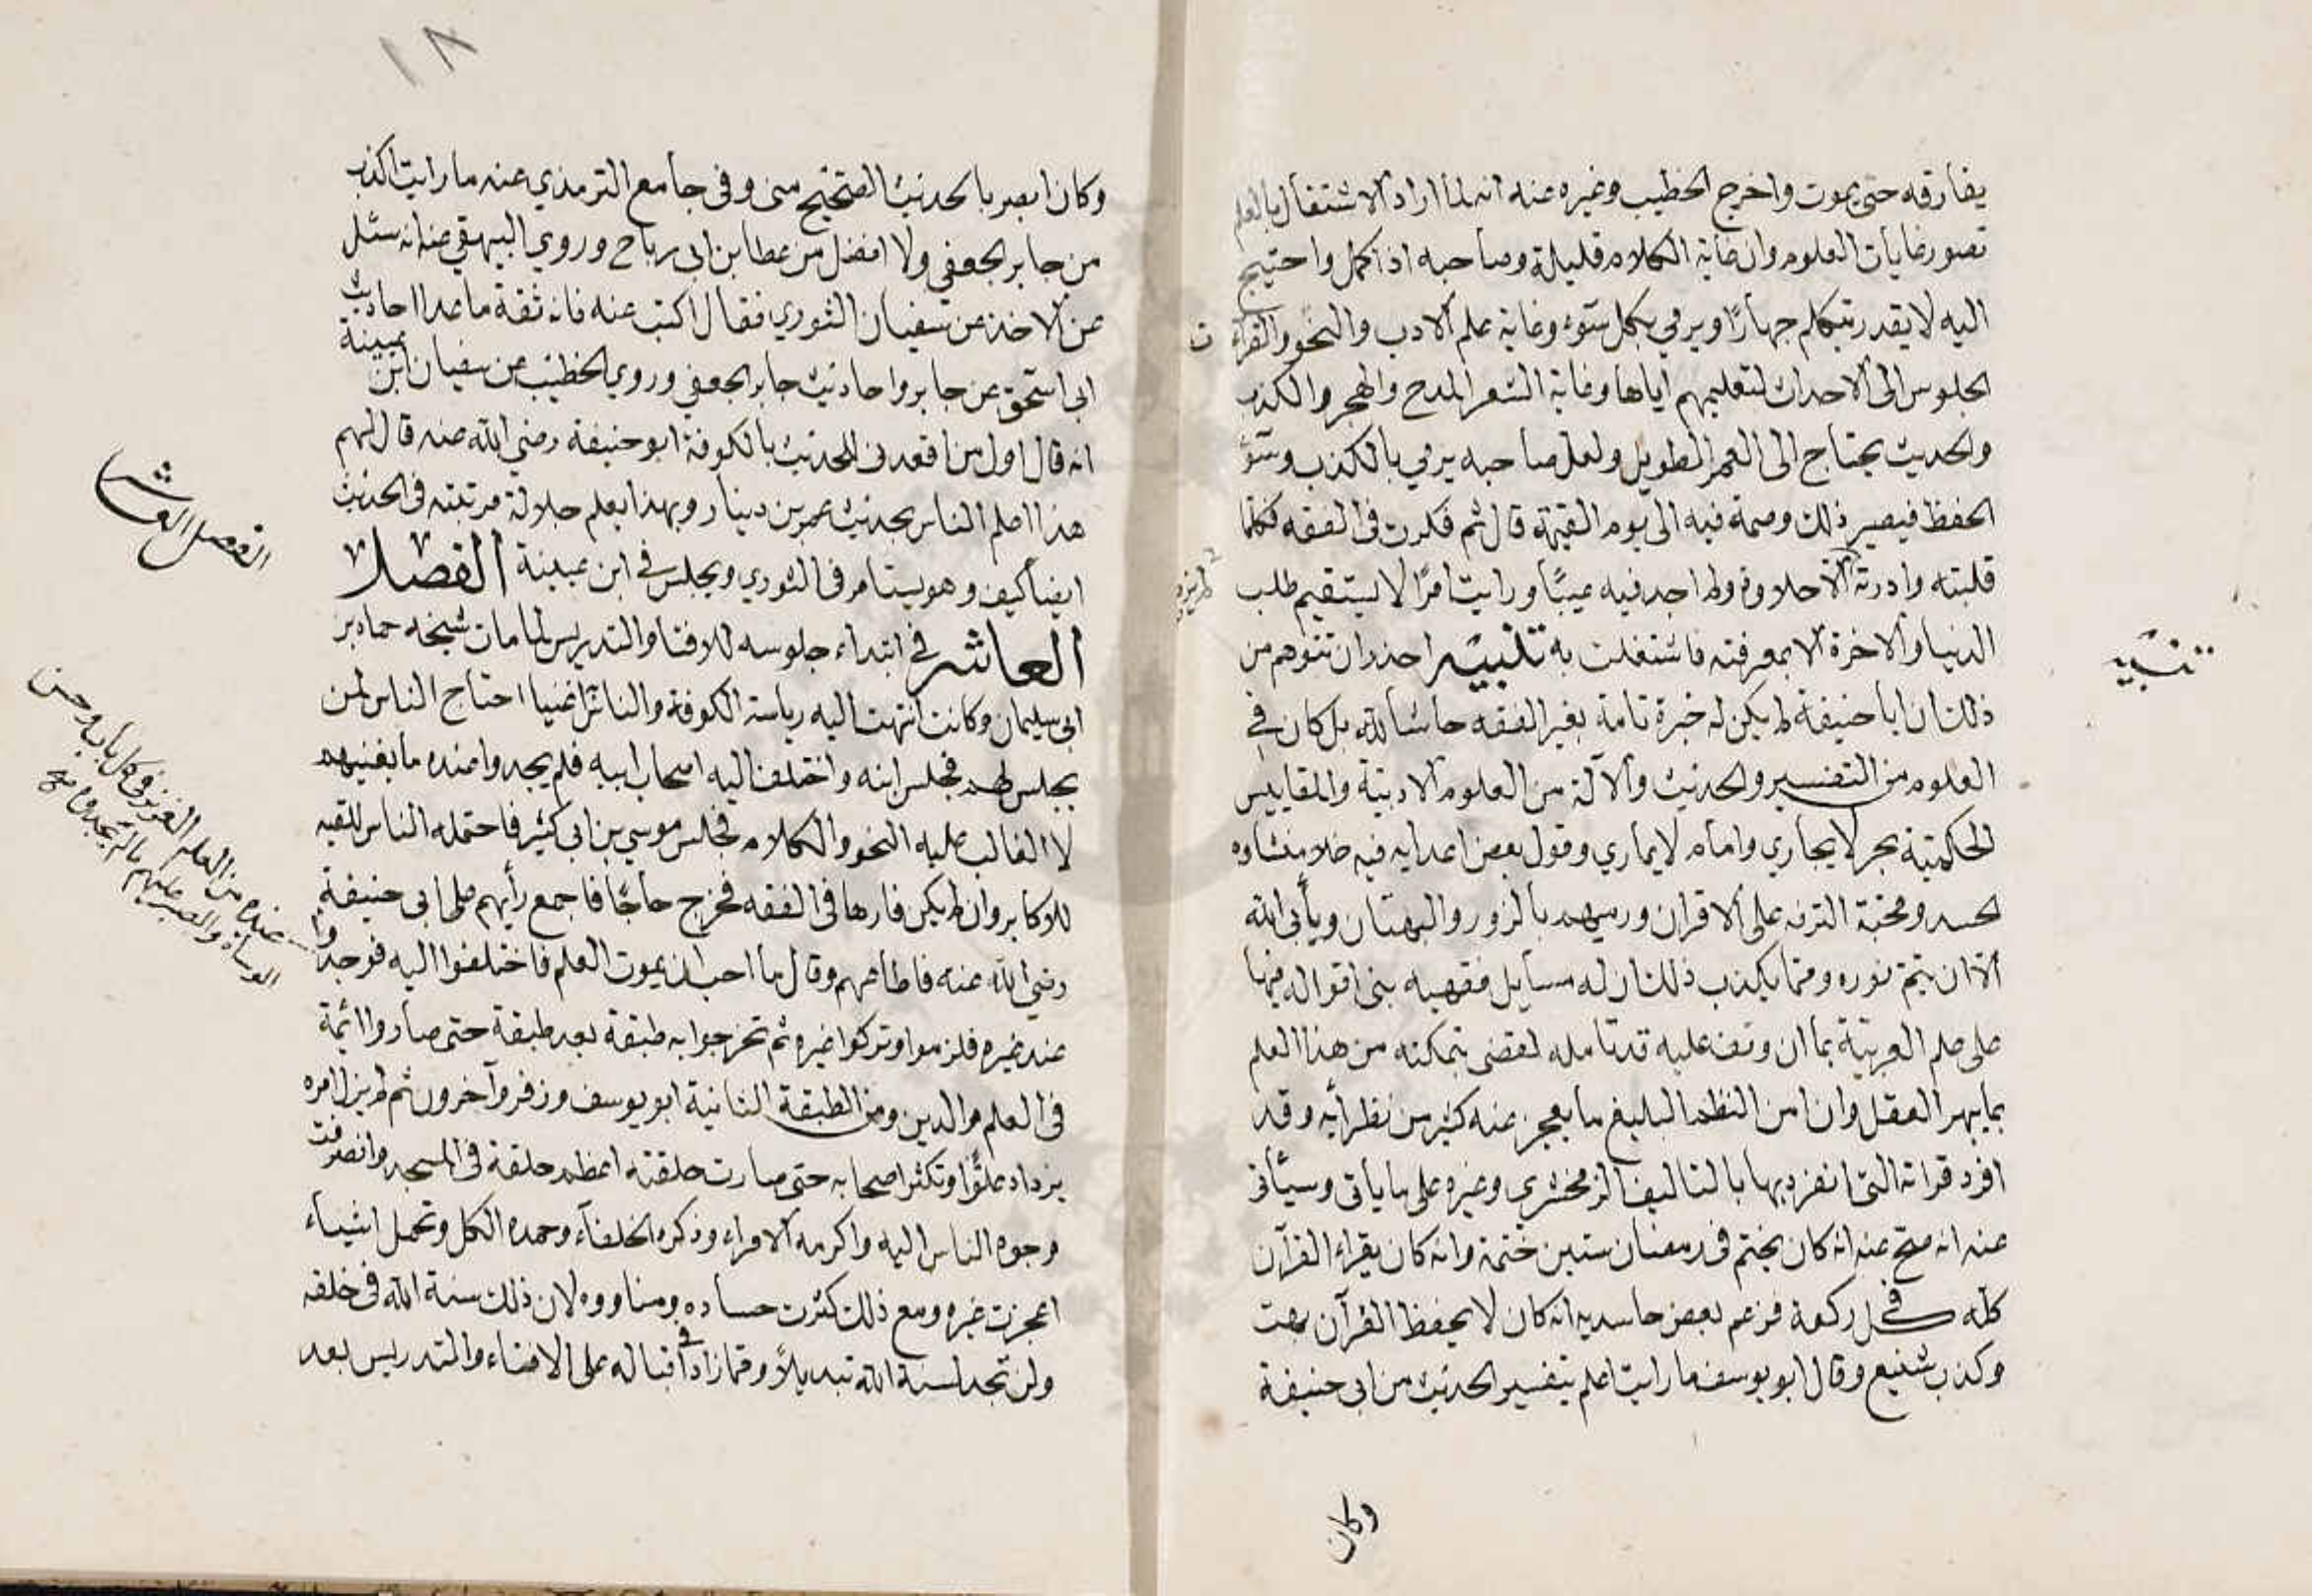 يفارقه حتى يموت واخرج الخطيب وغيره عنه انه لما اراد الاشتغال بالعلم
تصور غايات العلوم وان غاية الكلام قليلة وصاحبه اذا كمل واحتيج
اليه لا يقدر يتكلم جهارًا ويرمي بكل سوء وغاية علم الادب والنحو والقراءت
الجلوس الى الاحداث لتعليمهم اياها وغاية الشعر المدح والهجر والكذب
والحديث يحتاج الى العمر الطويل ولعل صاحبه يرمي بالكذب وسوء
الحفظ فيصير ذلك وصمة فيه الى يوم القيمة قال ثم فكرت في الفقه فكلما
قلبته وادرته لم يزدد الا حلاوة ولم اجد فيه عيبًا ورايت امرًا لا يستقيم طلب
الدنيا والاخرة الا بمعرفته فاشتغلت به تنبيه احذر ان تتوهم من
تنبيه
ذلك ان ابا حنيفة لم يكن له خبرة تامة بغير الفقه حاشا لله بل كان في
العلوم من التفسير والحديث والآلة من العلوم الادبية والمقاييس
الحكمية بحر لا يجاري وامام لا يماري وقول بعض اعدايه فيه خلاف منشاوه
لحسد ومحبة الترفع على الاقران ورميهم بالزور والبهتان ويأبى الله
الا ان يتم نوره ومما يكذب ذلك ان له مسايل فقهيه بنى اقواله فيها
على علم العربية بما ان وقف عليه قد تامله لقضى بتمكنه من هذا العلم
بما يبهر العقل وان من النظم البليغ ما يعجز عنه كثير من نظرائه وقد
افرد قراته التي انفرد بها بالتاليف الزمخشري وغيره على ما ياتى وسيأتى
عنه انه صح عنه انه كان يختم في رمضان ستين ختمة وانه كان يقراء القرآن
كله في كل ركعة فزعم بعض حاسديه انه كان لا يحفظ القرآن بهت
وكذب شنيع وقال ابو يوسف ما رايت اعلم بتفسير الحديث من ابى حنيفة
وكان
١٨
وكان ابصر بالحديث الصحيح منى وفى جامع الترمذي عنه ما رايت اكذب
من جابر الجعفي ولا افضل من عطا بن ابى رباح وروي البيهقي عنه انه سئل
عن الاخذ عن سفيان الثوري فقال اكتب عنه فانه ثقة ما عدا احاديث
ابى اسحق عن جابر واحاديث جابر الجعفي وروي الخطيب عن سفيان ابن عيينة
انه قال اول من اقعدنى للحديث بالكوفة ابو حنيفة رضي الله عنه قال لهم
هذا اعلم الناس بحديث عمر بن دينار وبهذا يعلم جلالة مرتبته فى الحديث
ايضا كيف وهو يستامر فى الثوري ويجلس في ابن عيينة الفصل
الفصل العاشر
العاشر في ابتداء جلوسه للافتا والتدريس لما مات شيخه حماد بن
ابى سليمان وكانت انتهت اليه رياسة الكوفة والناس اغنيا احتاج الناس لمن
يجلس لهم فجلس ابنه واختلف اليه اصحاب ابيه فلم يجدوا عنده ما يغنيهم
لا الغالب عليه النحو والكلام فجلس موسي بن ابى كثير فاحتمله الناس للقيه
للاكابر وان لم يكن فارها فى الفقه فخرج حاجًا فاجمع رأيهم على ابى حنيفة
رضي الله عنه فاطاعهم وقال ما احب ان يموت العلم فاختلفوا اليه فوجدوا
عنده من العلم الغزير فى كل باب وحسن
المواساة والصبر عليهم ما لم يجدوه
عند غيره فلزموا وتركوا غيره ثم تخرجوا به طبقة بعد طبقة حتى صاروا ائمة
فى العلم والدين ومن الطبقة الثانية ابو يوسف وزفر وآخرون ثم لم يزل امره
يزداد علوًا وتكثر اصحابه حتى صارت حلقته اعظم حلقة فى المسجد وانصرفت
وجوه الناس اليه واكرمه الامراء وذكره الخلفاء وحمده الكل وتحمل اشياء
اعجزت غيره ومع ذلك كثرت حساده ومناووه لان ذلك سنة الله فى خلقه
ولن تجد لسنة الله تبديلاً ومما زاد في اقباله على الافتاء والتدريس بعد